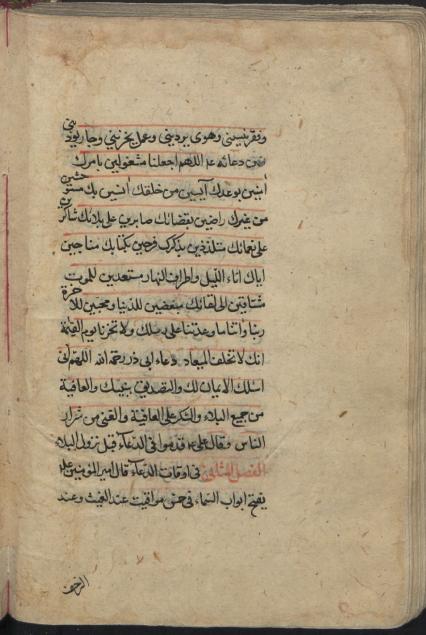 وفقر ينسيني وهوى يرديني وعمل يخزيني وجار يوذيني
ومن دعائه ع اللهم اجعلنا مشغولين بامرك
امنين بوعدك آيسين من خلقك آنسين بك مستوحشين
من غيرك راضين بقضائك صابرين على بلائك شاكرين
على نعمائك متلذذين بذكرك فرحين بكتابك مناجين
اياك اناء الليل واطراف النهار مستعدين للموت
مشتاقين الى لقائك مبغضين للدنيا ومحبين للاخرة
ربنا واتنا ما وعدتنا على رسلك ولا تخزنا يوم القيمة
انك لا تخلف الميعاد دعاء ابى ذر رحمة الله اللهم انى
اسئلك الايمان لك والتصديق بنبيك والعافية
من جميع البلاء والشكر على العافية والغنى من شرار
الناس وقال على ع قدموا فى الدعاء قبل نزول البلاء
الفصل الثانى فى اوقات الدعاء قال امير المؤمنين علي
يفتح ابواب السماء فى خمس مواقيت عند الغيث وعند
الزحف